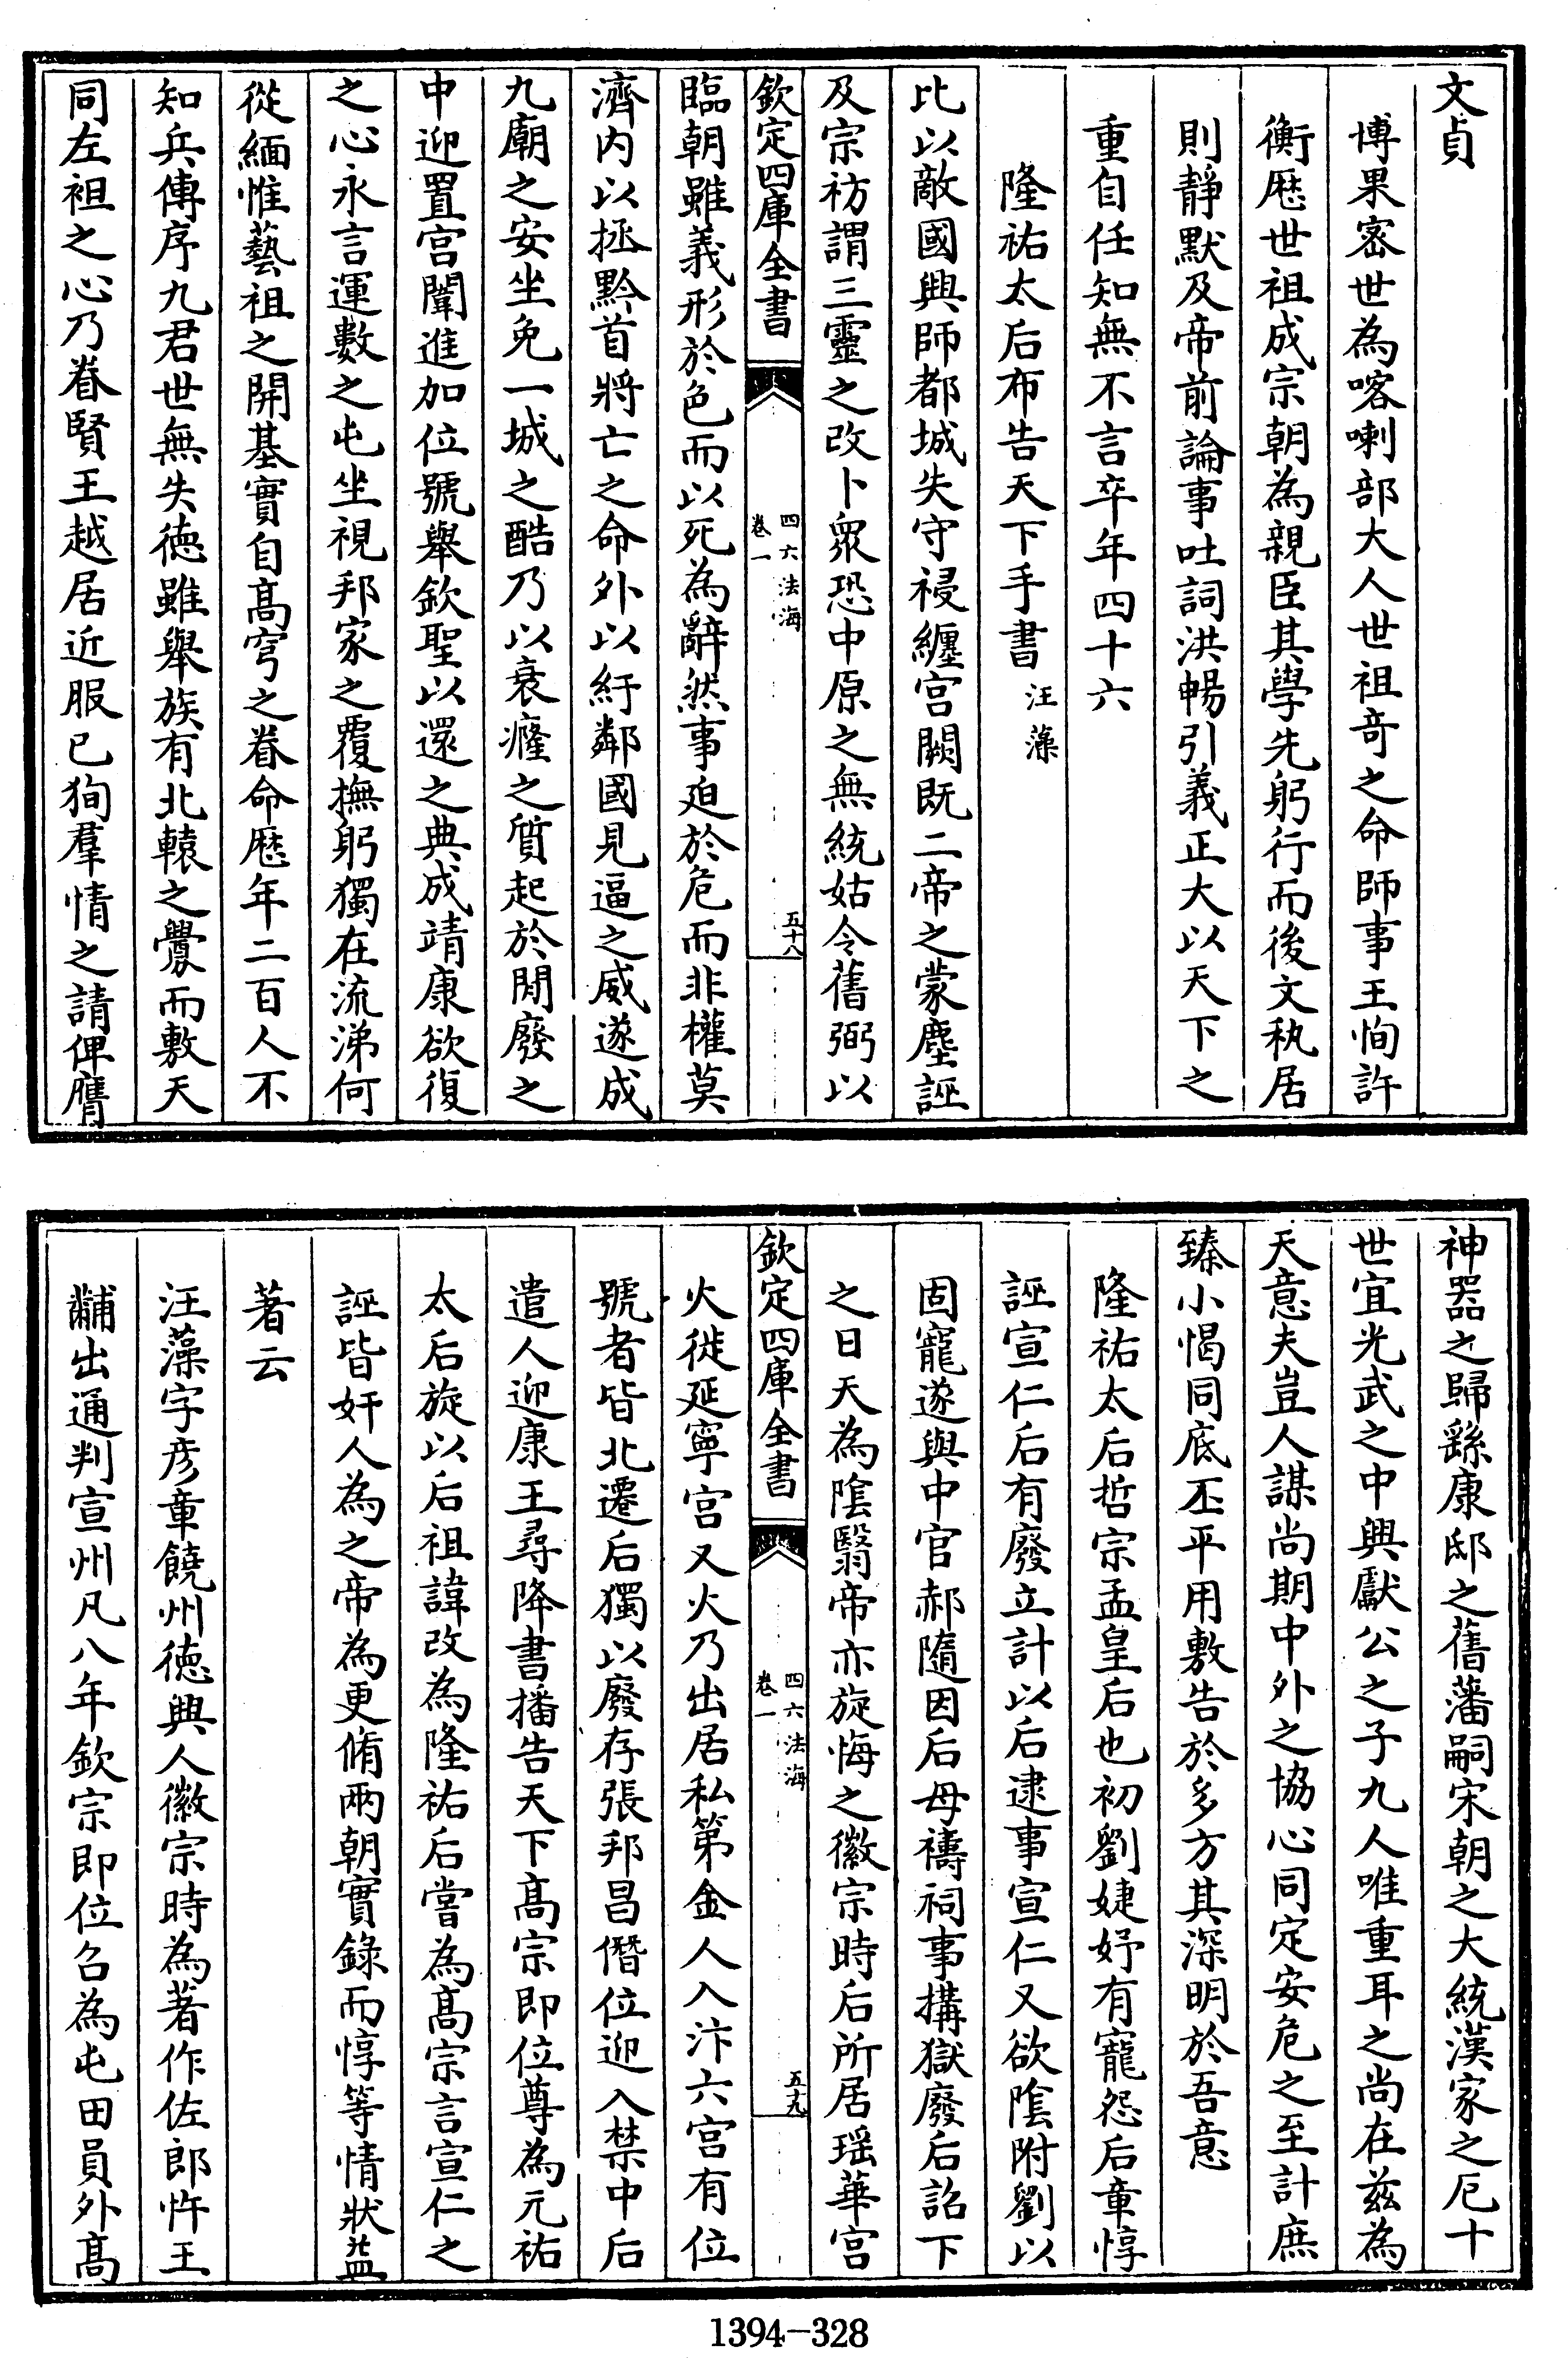 文貞
博果宻世為喀喇部大人世祖竒之命師事王恂許
衡歴世祖成宗朝為親臣其學先躬行而後文執居
則靜默及帝前論事吐詞洪暢引義正大以天下之
重自任知無不言卒年四十六
隆祐太后布告天下手書 汪藻
比以敵國興師都城失守祲纏宫闕既二帝之蒙塵誣
及宗祊謂三靈之改卜衆恐中原之無統姑令舊弼以
欽定四庫全書 四六法海 卷一 五十八
臨朝雖義形於色而以死為辭然事廹於危而非權莫
濟内以拯黔首將亡之命外以紓鄰國見逼之威遂成
九廟之安坐免一城之酷乃以衰癃之質起於閒廢之
中迎置宫闈進加位號舉欽聖以還之典成靖康欲復
之心永言運數之屯坐視邦家之覆撫躬獨在流涕何
從緬惟藝祖之開基實自髙穹之眷命歴年二百人不
知兵傳序九君世無失德雖舉族有北轅之釁而敷天
同左袒之心乃眷賢王越居近服已狥羣情之請俾膺
神器之歸繇康邸之舊藩嗣宋朝之大統漢家之厄十
世宜光武之中興獻公之子九人唯重耳之尚在兹為
天意夫豈人謀尚期中外之協心同定安危之至計庶
臻小愒同底丕平用敷告於多方其深明於吾意
隆祐太后哲宗孟皇后也初劉婕妤有寵怨后章惇
誣宣仁后有廢立計以后逮事宣仁又欲隂附劉以
固寵遂與中官郝隨因后母禱祠事搆獄廢后詔下
之日天為隂翳帝亦旋悔之徽宗時后所居瑶華宫
欽定四庫全書 四六法海 卷一 五十九
火徙延寧宫又火乃出居私第金人入汴六宫有位
號者皆北遷后獨以廢存張邦昌僭位迎入禁中后
遣人迎康王尋降書播告天下髙宗即位尊為元祐
太后旋以后祖諱改為隆祐后嘗為髙宗言宣仁之
誣皆奸人為之帝為更脩兩朝實錄而惇等情狀益
著云
汪藻字彦章饒州徳興人徽宗時為著作佐郎忤王
黼出通判宣州凡八年欽宗即位召為屯田員外髙
1394-328